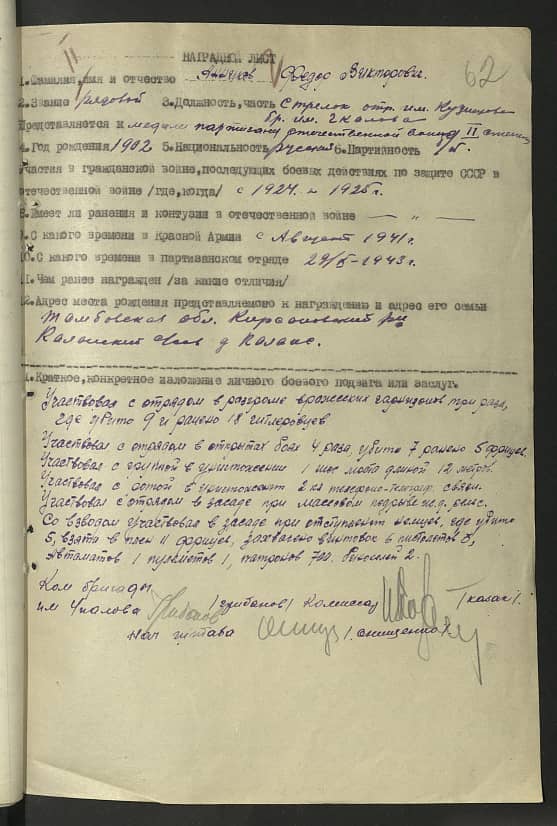 62
НАГРАДНОЙ ЛИСТ
1.Фамилия,имя и отчество Федос Викторович
2.Звание рядовой 3.Должность,часть Стрелок отр. им. Кузнецова
бр. им. Чкалова
Представляется к медали партизану отечественной войны II степени
4.Год рождения 1902 5.Национальность русский 6.Партийность б/п.
участия в гражданской войне,последующих боевых действиях по защите СССР в
отечественной войне /где,когда/ с 1924. и 1925г.
8.Имеет ли ранения и контузии в отечественной войне — " —
9.С какого времени в Красной Армии с Август 1941г.
10.С какого времени в партизанском отряде 1943г.
11.Чем ранее награжден /за какие отличия/
12.Адрес места рождения представляемого к награждению и адрес его семьи
Тамбовская обл. Кирсановский рн
Калаисский с/сов д Калаис.
1.Краткое,конкретное изложение личного боевого подвига или заслуг.
Участвовал с отрядом в разгроме вражеских гарнизонов при раза,
где убито 9 и ранено 18 гитлеровцев
Участвовал с отрядом в открытых боях 4 раза, убито 7 ранено 5 фрицев.
Участвовал с группой в уничтожении 1 шос моста длиной 12 метров.
Участвовал с ротой в уничтожении 2 км телефоно-телегр. связи.
Участвовал с отрядом в засаде при массовом подрыве ж.д. рельс.
Со взводом участвовал в засаде при отступлении немцев, где убито
5, взято в плен 11 фрицев, захвачено винтовок 6 пистолетов
Автоматов 1 пулеметов 1, патронов 700. 2.
Ком бригады
им Чкалова /грибанов/ Комиссар /казак/.
Нач штаба /онищенко/